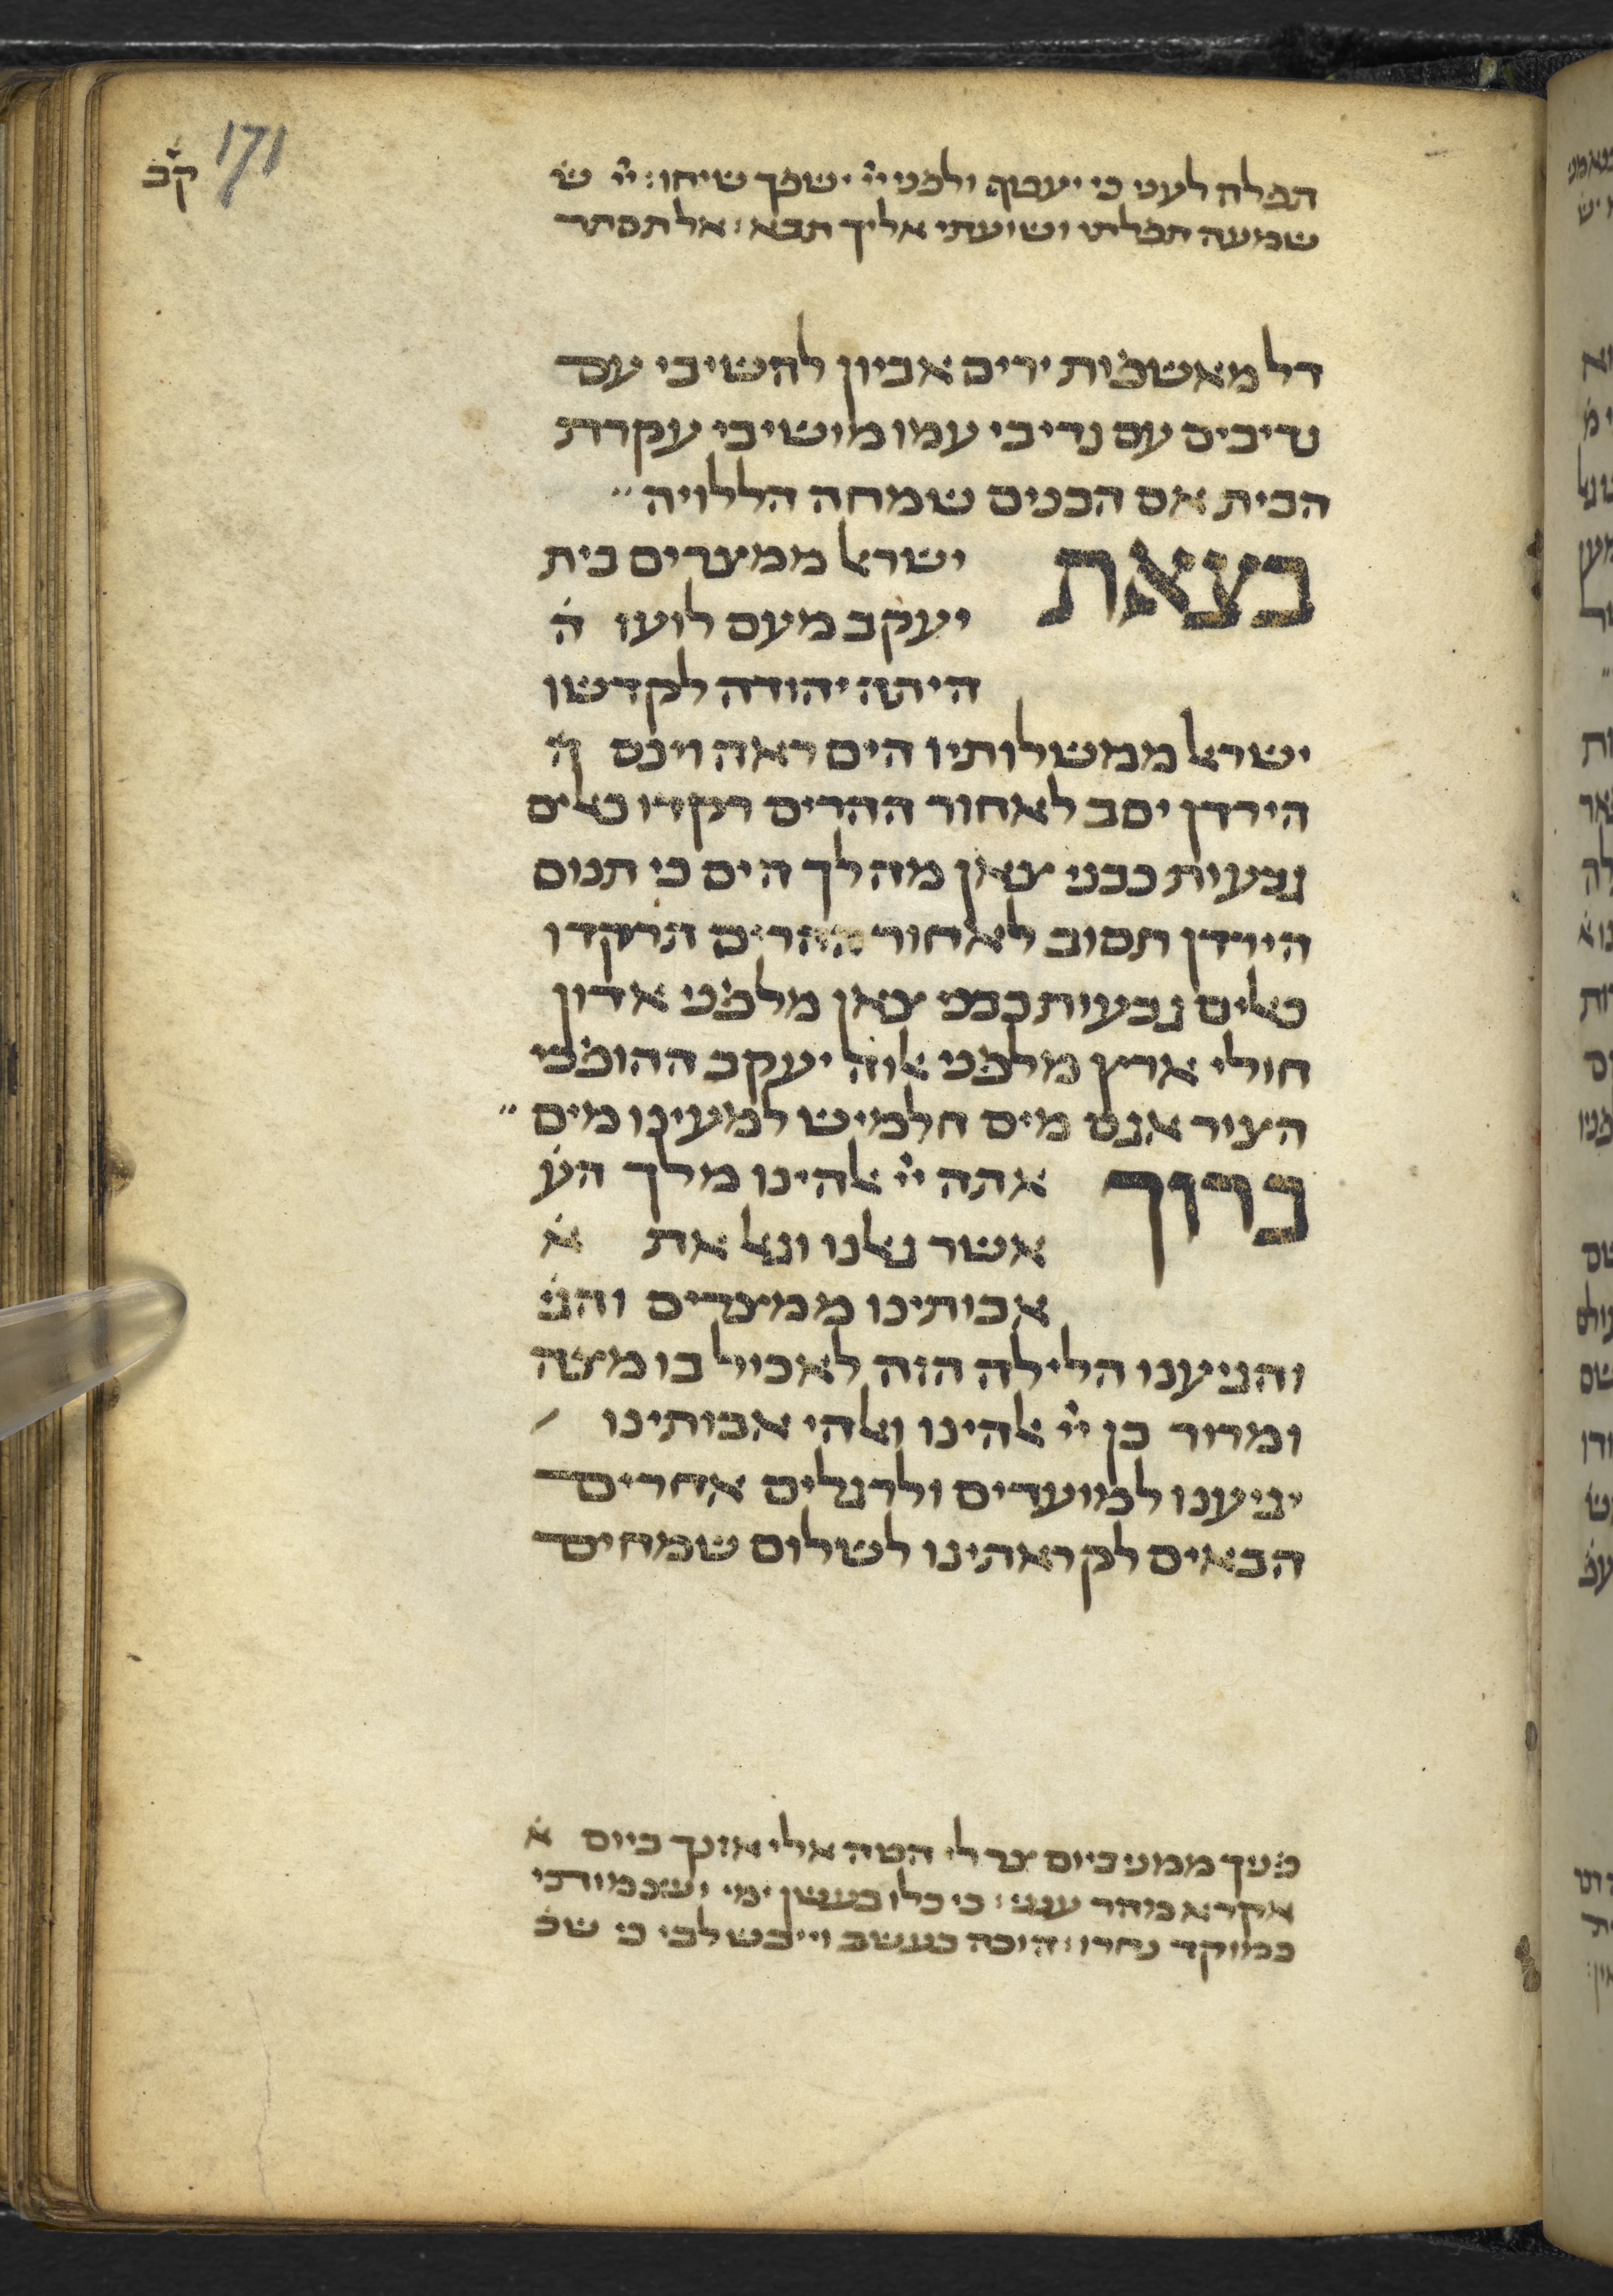 171
קׄב
תפלה לעני כי יעטוף ולפני יי ישפך שיחו: יי ש
שמעה תפלתי ושועתי אליך תבא: אל תסתר
דל מאשפות ירים אביון להשיבי עם
נדיבים עם נדיבי עמו מושיבי עקרת
הבית אם הבנים שמחה הללויה״
בצאת ישראל ממצרים בית
יעקב מעם לועז ה
היתה יהודה לקדשו
ישראל ממשלותיו הים ראה וינס ה
הירדן יסב לאחור ההרים רקדו כאלים
גבעות כבני צאן מה לך הים כי תנוס
הירדן תסוב לאחור ההרים תרקדו
כאלים גבעות כבני צאן מלפני אדון
חולי ארץ מלפני אלוה יעקב ההופכי
הצור אגם מים חלמיש למעינו מים״
ברוך אתה יי אלהינו מלך הע
אשר גאלנו וגאל את א
אבותינו ממצרים והג
והגיענו הלילה הזה לאכול בו מצה
ומרור כן יי אלהינו ואלהי אבותינו
יגיענו למועדים ולרגלים אחרים
הבאים לקראתינו לשלום שמחים
פניך ממני ביום צר לי הטה אלי אזנך ביום א
אקרא מהר ענני: כי כלו בעשן ימי ועצמותי
כמוקד נחרו: הוכה כעשב וייבש לבי כי שכ